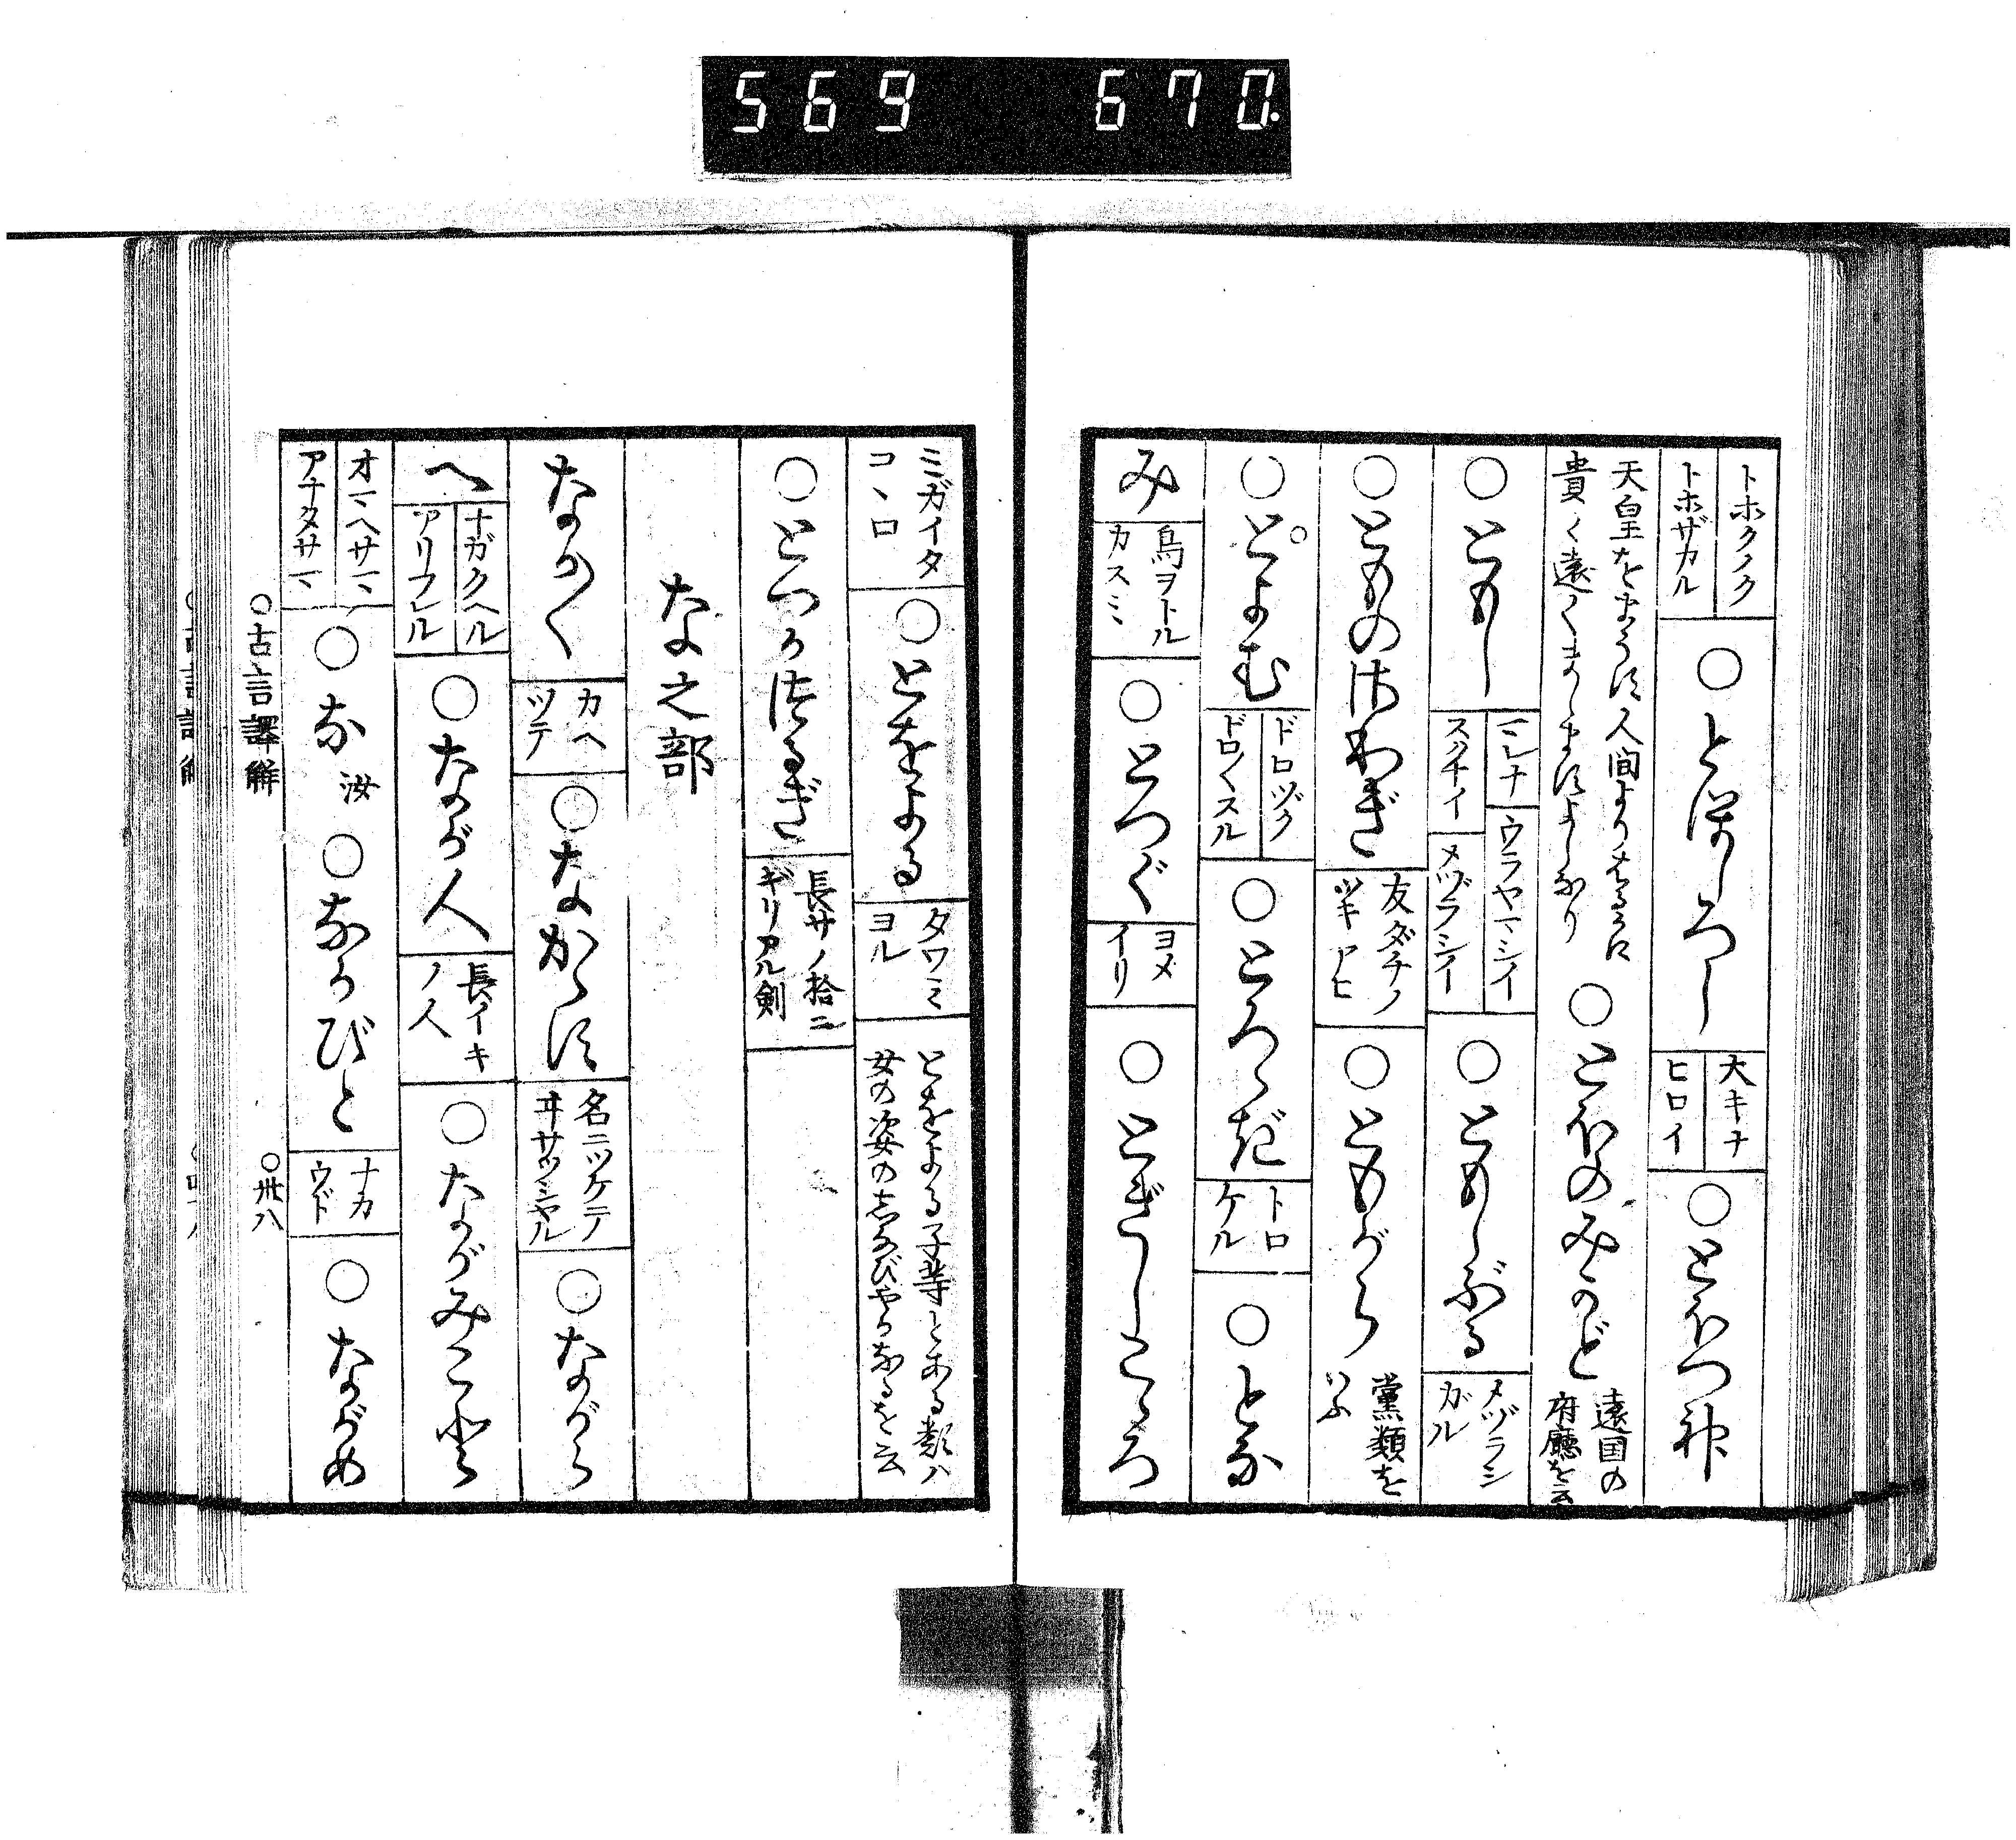 569 670.
トホクノク
トホザカル
○とほしろし
大キナ
ヒロイ
○とほつ神
天皇をまうす人間よりはるかに
貴く遠くましますよしなり
○とほのみかど
遠国の
府廳を云
○ともし
ウラヤマシイ
スクナイ
メヅラシイ
○ともしぶる
メヅラシ
ガル
○とものはわぎ
友ダチノ
ツキアヒ
○ともがら
黨類を
いふ
○とよむ
ドロヅク
ドロ〱スル
○とろゝだ
トロ
ケル
○とな
み
鳥ヲトル
カスミ
○とつぐ
ヨメ
イリ
○とぎしこゝろ
ミガイタ
コヽロ
○とをよる
タワミ
ヨル
とをよる子等とある類ハ
女の姿のしなびやかなるを云
○とつかつるぎ
長サノ拾ニ
ギリアル剣
な之部
なか〱
カヘ
ツテ
○なかゝす
名ニツケテ
ヰサツシヤル
○ながら
へ
ナガクヘル
アリフレル
○なが人
長イキ
ノ人
○ながみこと
オマヘサマ
アナタサマ
○な 汝
○なかびと
ナカ
ウド
○ながめ
○古言譯解
○卅八